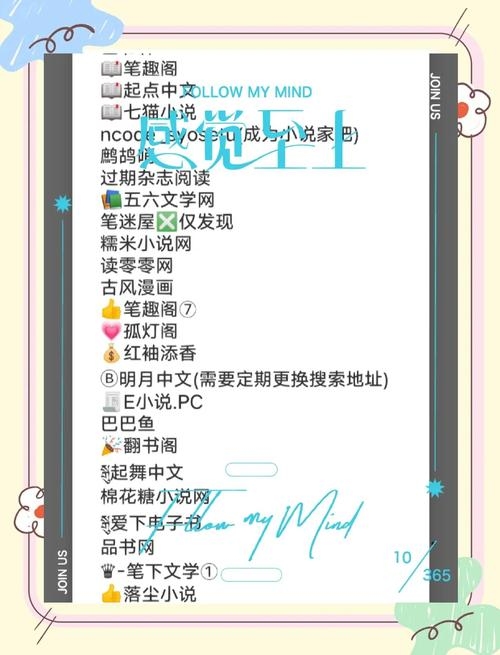 📖笔趣阁
📖起点中文
FOLLOW MY MIND
📖七猫小说
感觉至上
ncode.syosetu(成为小说家吧)
鹧鸪哨
过期杂志阅读
📚五六文学网
笔迷屋❎仅发现
糯米小说网
读零零网
古风漫画
👍笔趣阁⑦
💗孤灯阁
💰红袖添香
Ⓑ明月中文(需要定期更换搜索地址)
E小说.PC
巴巴鱼
🎉翻书阁
起舞中文
棉花糖小说网
爱下电子书
Follow my Mind
品书网
♛-笔下文学①
👍落尘小说
10/365
JOIN US
JOIN US